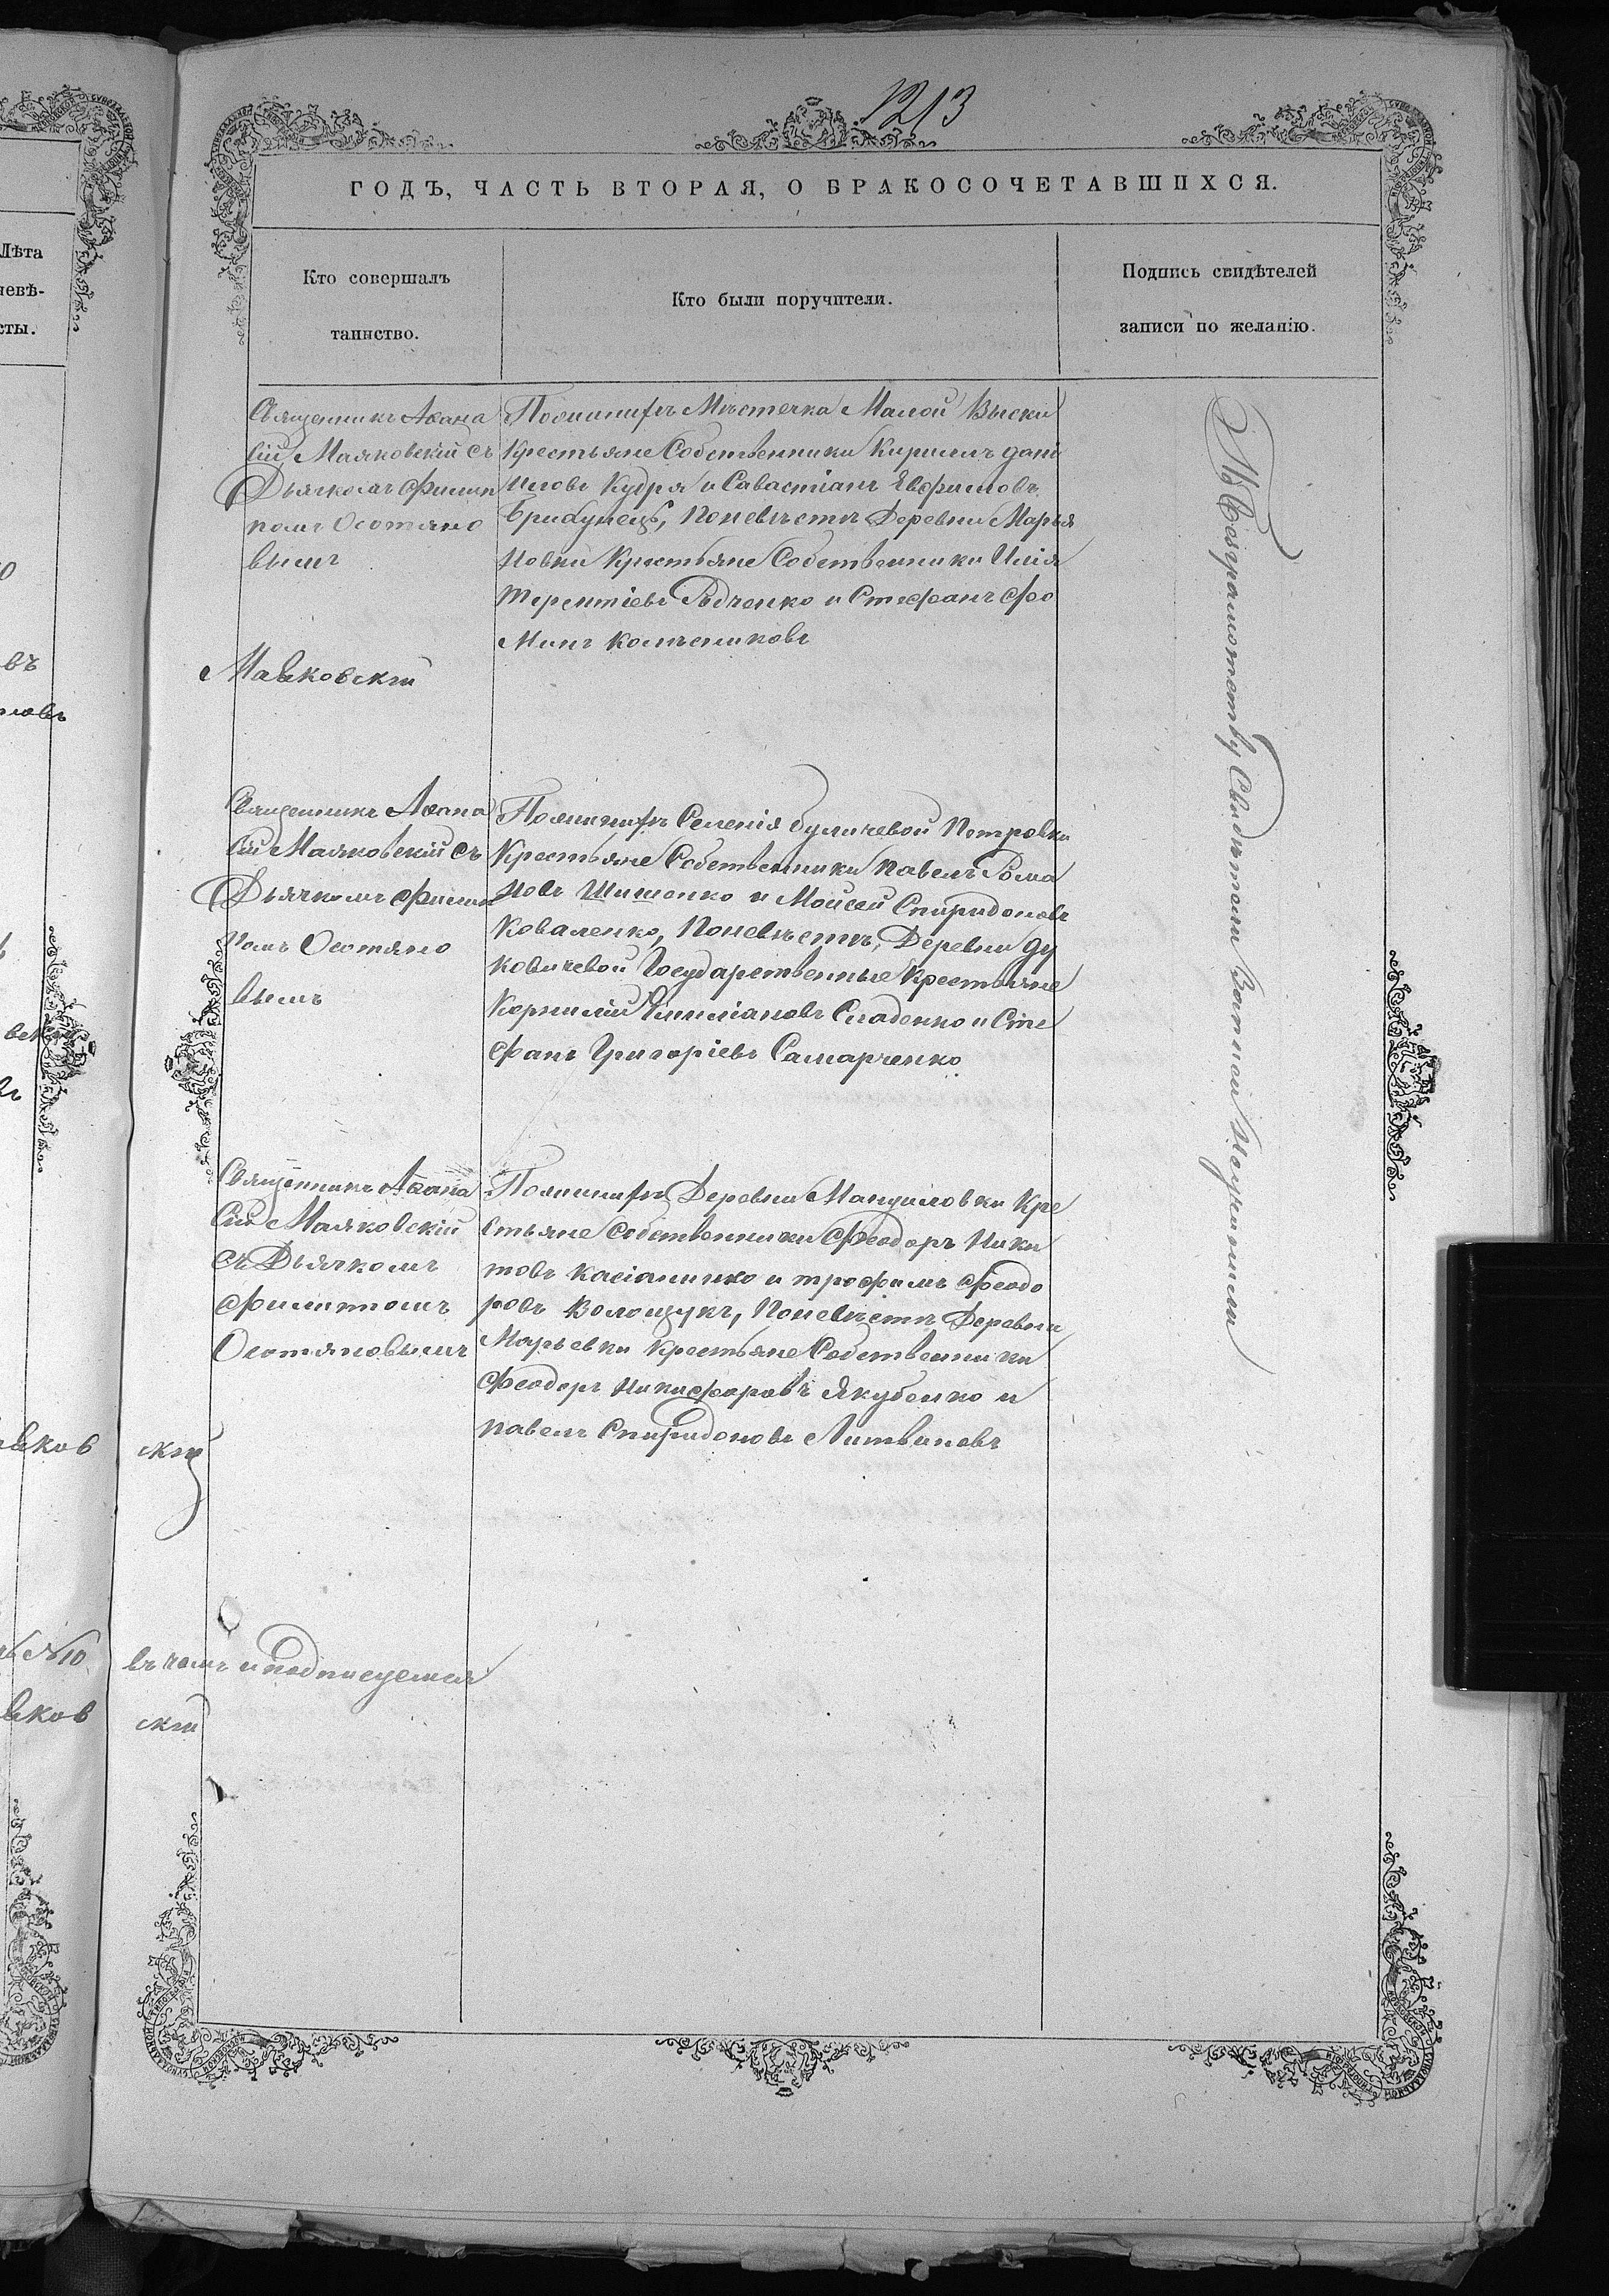 1213
ГОДЪ, ЧАСТЬ ВТОРАЯ, О БРАКОСОЧЕТАВШИХСЯ.
Лѣта
невѣ-
сты.
Кто совершалъ
таинство.
Кто были поручители.
Подпись свидѣтелей
записи по желанію.
Священникъ Аѳана
сій Маяковскій съ
Дьячкомъ Филип
помъ Осотяно
вымъ
Маяковскій
По женихѣ Мѣстечка Малой Выски
Крестьяне Собственники Кирилъ Дані
иловъ Кудря и Савастіанъ Евфимовъ
По невѣстѣ Деревни Марья
новки Крестьяне Собственники Илія
Терентіевъ Рѣдченко и Стефанъ Фо
минъ Колѣсниковъ
Священникъ Аѳана
сій Маяковскій съ
Дьячкомъ Филип
помъ Осотяно
вымъ
По женихѣ Селенія Буличевой Петровки
Крестьяне Собственники Павелъ Рома
новъ Шишенко и Мойсей Спиридоновъ
Коваленко, По невѣстѣ, Деревни Ду
ковичевой Государственные Крестьяне
Корнилій Емиліановъ Сладенко и Сте
фанъ Григоріевъ Самарченко
Священникъ Аѳана
сій Маяковскій
съ Дьячкомъ
Филиппомъ
Осотяновымъ
По женихѣ Деревни Мануиловки Кре
стьяне Собственники Феодоръ Ники
товъ Касіаненко и Трофимъ Феодо
ровъ Волощукъ, По невѣстѣ Деревни
Марьевки Крестьяне Собственники
Феодоръ Никифоровъ Якубенко и
Павелъ Спиридоновъ Литвиновъ
яков скій
№ 10 въ чемъ и подписуемся
яков скій
По безграмотству Свидѣтели Записи